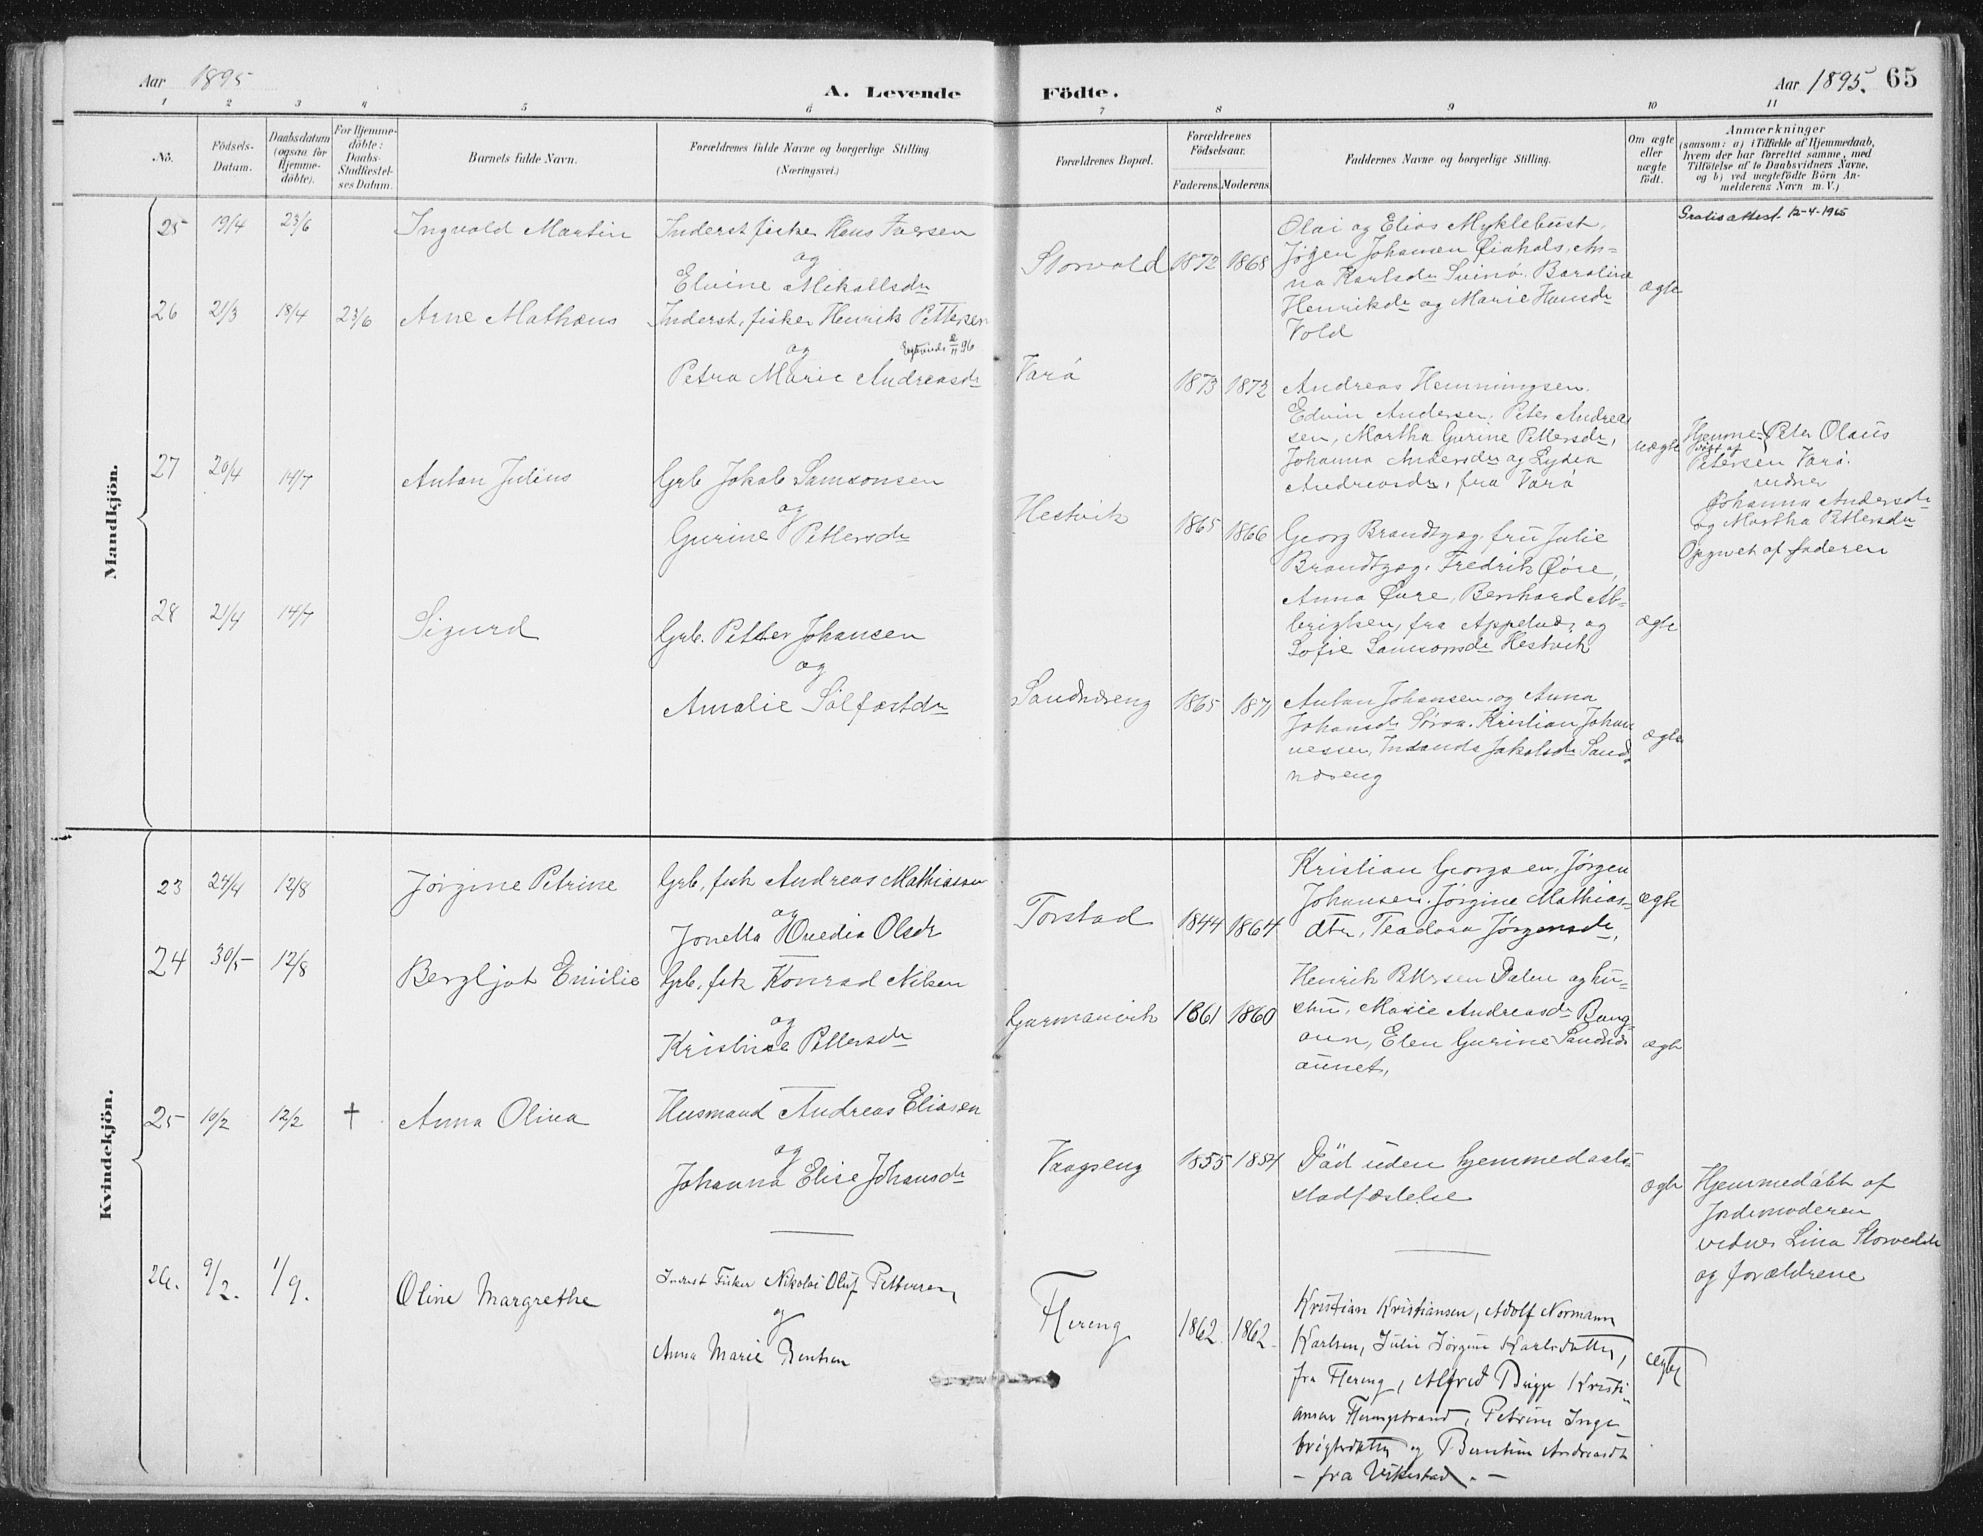 Aar 1895
A. Levende Födte.
Aar 1895. 65
1 2 3 4 5 6 7 8 9 10 11
No.
Födsels-
Datum.
Daabsdatum
(ogsaa for
Hjemme-
döbte).
For Hjemme-
döbte:
Daabs-
Stadfæstel-
ses Datum.
Barnets fulde Navn.
Forældrenes fulde Navne og borgerlige Stilling
(Næringsvei.)
Forældrenes Bopæl.
Forældrenes
Födselsaar.
Faderens. Moderens.
Faddernes Navne og borgerlige Stilling.
Om ægte
eller
uægte
födt.
Anmærkninger
(saasom: a) i Tilfælde af Hjemmedaab,
hvem der har forrettet samme, med
Tilföielse af to Daabsvidners Navne,
og b) ved uægtefödte Börn An-
melderens Navn m. V.)
Mandkjön.
25 19/4 23/6 Ingvald Martin
Inderst fisker Hans
og
Elvine Mikallsdr
Storvold 1872 1868
Olai og Elias Myklebust,
Jørgen Johansen
na Karlsdr Svinø.
Henriksdr og Marie Hansdr
Vold
ægte
Gratis attest. 12-4-1965
26 21/3 18/4 23/6 Arne Mathæus
Inderst, fisker Henrik Pettersen
og
Petra Marie Andreasdr
Varø 1873 1873
Andreas Hemmingsen.
Edvin Andersen, Peter Andrea
sen, Martha Gurine Pettersdr,
Johanna Andersdr og Lydia
Andreasdr, fra Varø
uægte
Hjemme- Peter Olaus
døbt af
Petersen Varø.
vidner
Johanna Andersdr
og Martha Pettersdr
Opgivet af faderen
27 20/4 14/7 Anton Julius
Grb Jakob Samsonsen
og
Gurine Pettersdr
Hestvik 1865 1866
Georg Brandtzæg, fru Julie
Brandtzæg. Fredrik Øvre,
Anna Øvre, Bernhard Al-
brigtsen, fra Appelvær og
Sofie Samsonsdr Hestvik
ægte
28 21/4 14/7 Sigurd
Grb. Petter Johansen
og
Amalie Sølfæstdr
Sandnæseng 1865 1871
Anton Johansen og Anna
Johansdr Sørøa. Kristian Johan
nessen, Jakobsdr Sand
næseng
ægte
Kvindekjön.
23 24/4 12/8 Jørgine Petrine
Grb, fisk Andreas Mathiassen
og
Jonetta Olsdr
Torstad 1844 1864
Kristian Georgsen, Jørgen
Johansen, Jørgine Mathias-
dtr, Teadora Jørgensdr,
ægte
24 30/5 12/8 Bergljot Emilie
Grb, fisk Konrad Nilsen
og
Kristine Pettersdr
Garmanvik 1861 1860
Henrik Pettersen Dalen og hu-
stru, Marie Andreasdr Bang-
aun, Elen Gurine Sandnæs
aunet,
ægte
25 10/2 12/2 † Anna Olina
Husmand Andreas Eliasen
og
Johanna Elise Johansdr
Vaagseng 1855 1854
Død uden hjemmedaabs-
stadfæstelse
ægte
Hjemmedøbt af
Jordemoderen
vidner Lina Storvedde
og forældrene
26. 9/2. 1/9. Oline Margrethe
Inderst Fisker Nikolai Oluf Pettersen
og
Anna Marie Bentsen
Flereng 1862 1862
Kristian Kristiansen, Adolf Normann
Karlsen, Julie Jørgine Karlsdatter,
fra Flereng, Alfred Kristi-
ansen Flerengstrand, Petrine Inge
brigtsdatter og Berntine Andreasdtr
- fra Vikestad. -
ægte